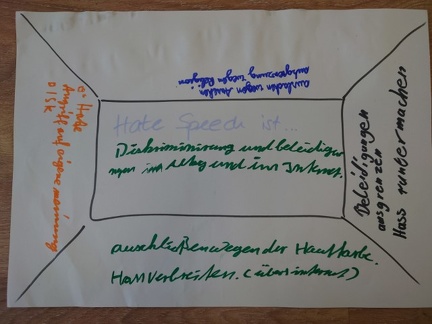 ausladen wegen
ausgrenzung wegen Religion
Hate Speech ist...
Diskriminierung und beleidigun
ngen im Alltag und im Internet.
Beleidigungen
ausgrenzen
Hass runtermachen
auschließen wegen der Hautfarbe.
Hass verbreiten. (übers internet)
Hate
Angriff auf eigene meinung